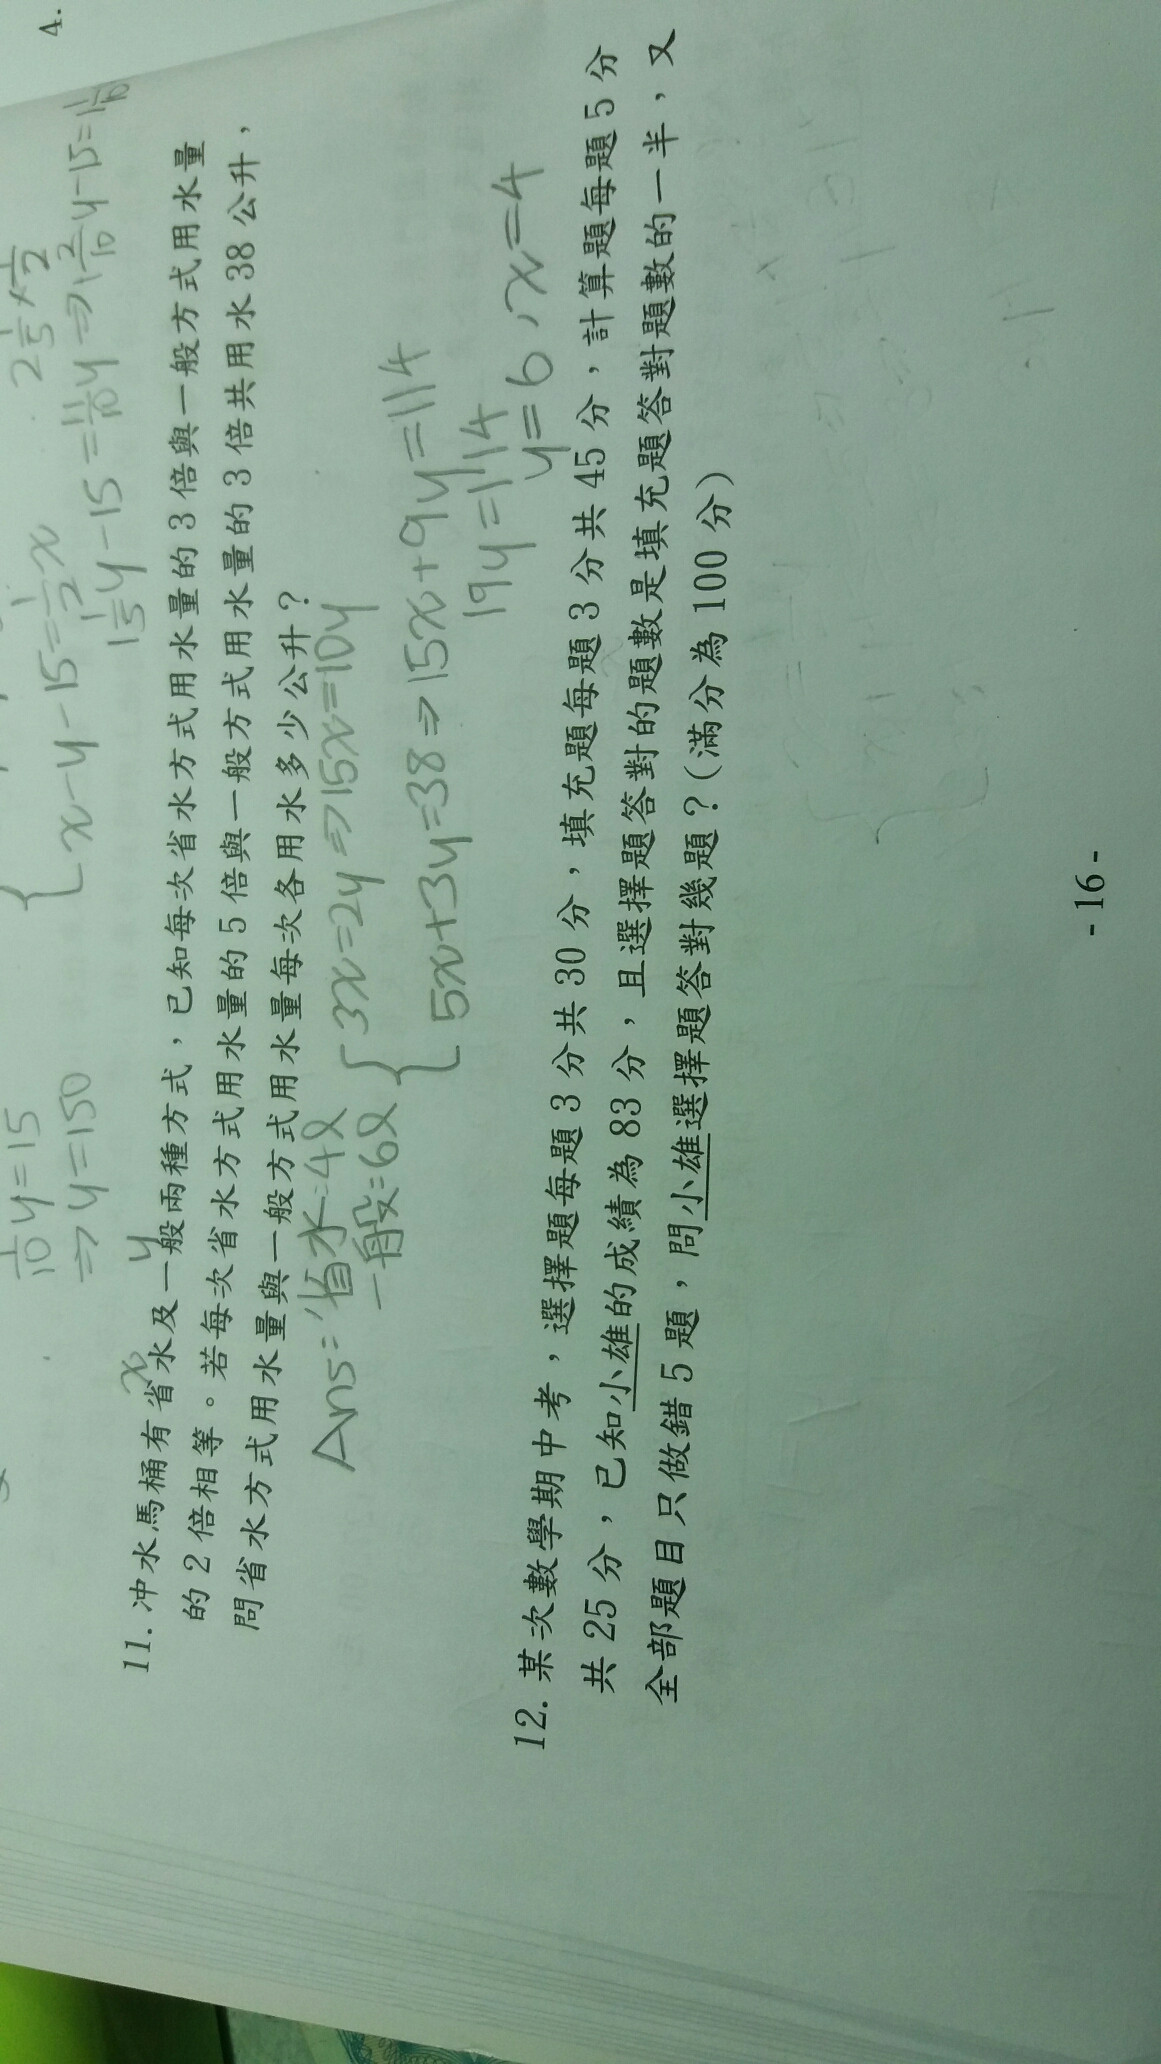 4.
1/10 y=15
⇒y=150
2 1/5 × 1/2
{x-y-15=1/2 x
1 1/5 y-15=11/10 y⇒1 2/10 y-15=1 1/10
x y
11. 冲水馬桶有省水及一般兩種方式，已知每次省水方式用水量的3倍與一般方式用水量
的2倍相等。若每次省水方式用水量的5倍與一般方式用水量的3倍共用水38公升，
問省水方式用水量與一般方式用水量每次各用水多少公升？
Ans=省水=4l
一般=6l
{3x=2y⇒15x=10y
5x+3y=38⇒15x+9y=114
19y=114
y=6，x=4
12. 某次數學期中考，選擇題每題3分共30分，填充題每題3分共45分，計算題每題5分
共25分，已知小雄的成績為83分，且選擇題答對的題數是填充題答對題數的一半，又
全部題目只做錯5題，問小雄選擇題答對幾題？(滿分為100分)
- 16 -